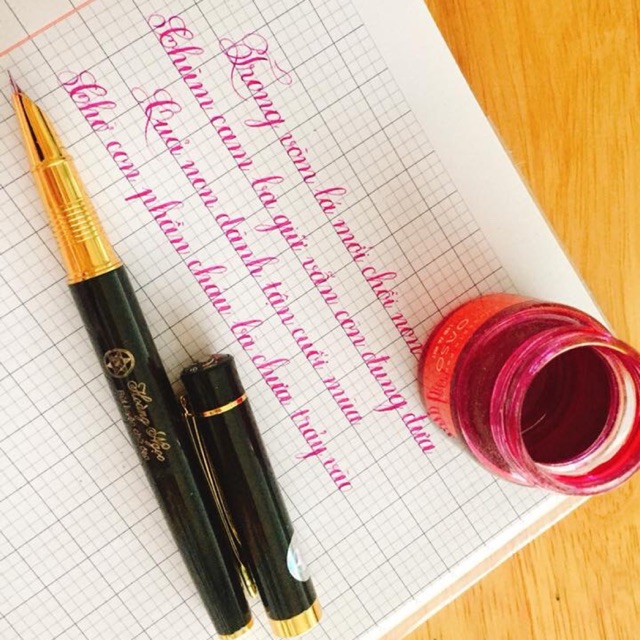 Trong vòm lá mới chồi non
Chùm cam bà giữ vẫn còn đung đưa
Quả non dành tận cuối mùa
Chờ con phần cháu bà chưa trảy vào